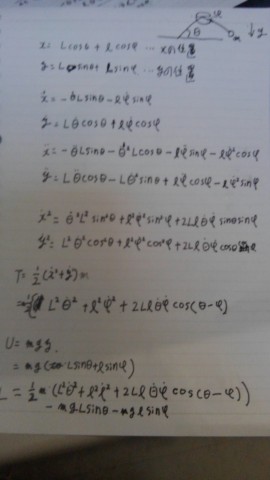 φ
θ
m
↓y
x = Lcosθ + lcosφ … xの位置
y = Lsinθ + lsinφ … yの位置
ẋ = -θ̇Lsinθ - lφ̇sinφ
ẏ = Lθ̇cosθ + lφ̇cosφ
ẍ = -θ̈Lsinθ - θ̇²Lcosθ - lφ̈sinφ - lφ̇²cosφ
ÿ = Lθ̈cosθ - Lθ̇²sinθ + lφ̈cosφ - lφ̇²sinφ
ẋ² = θ̇²L²sin²θ + l²φ̇²sin²φ + 2Llθ̇φ̇sinθsinφ
ẏ² = L²θ̇²cos²θ + l²φ̇²cos²φ + 2Llθ̇φ̇cosθ
T = ½(ẋ²+ẏ²)m
= ½ L²θ̇² + l²φ̇² + 2Llθ̇φ̇cos(θ-φ)
U = mgy.
= mg(Lsinθ+lsinφ)
L = ½m(L²θ̇²+l²φ̇²+2Llθ̇φ̇cos(θ-φ))
- mgLsinθ - mglsinφ